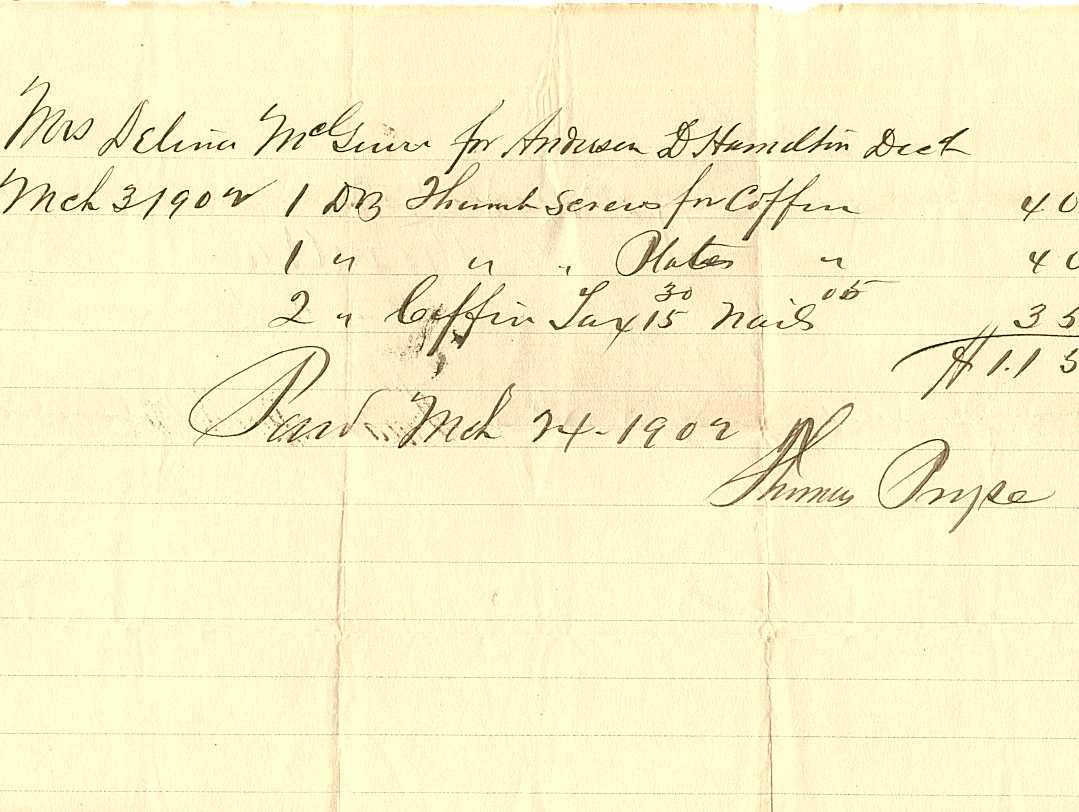 Mrs Delina McGuire for Anderson D Hamelton Dect
Mch 3 1902 1 DZ Thumb Screws for Coffin 40
1 " " " Plates " 40
2 " Coffin Tax 15 30 Nails 05 35
$1.15
Paid Mch 24-1902
Thomas Pryse